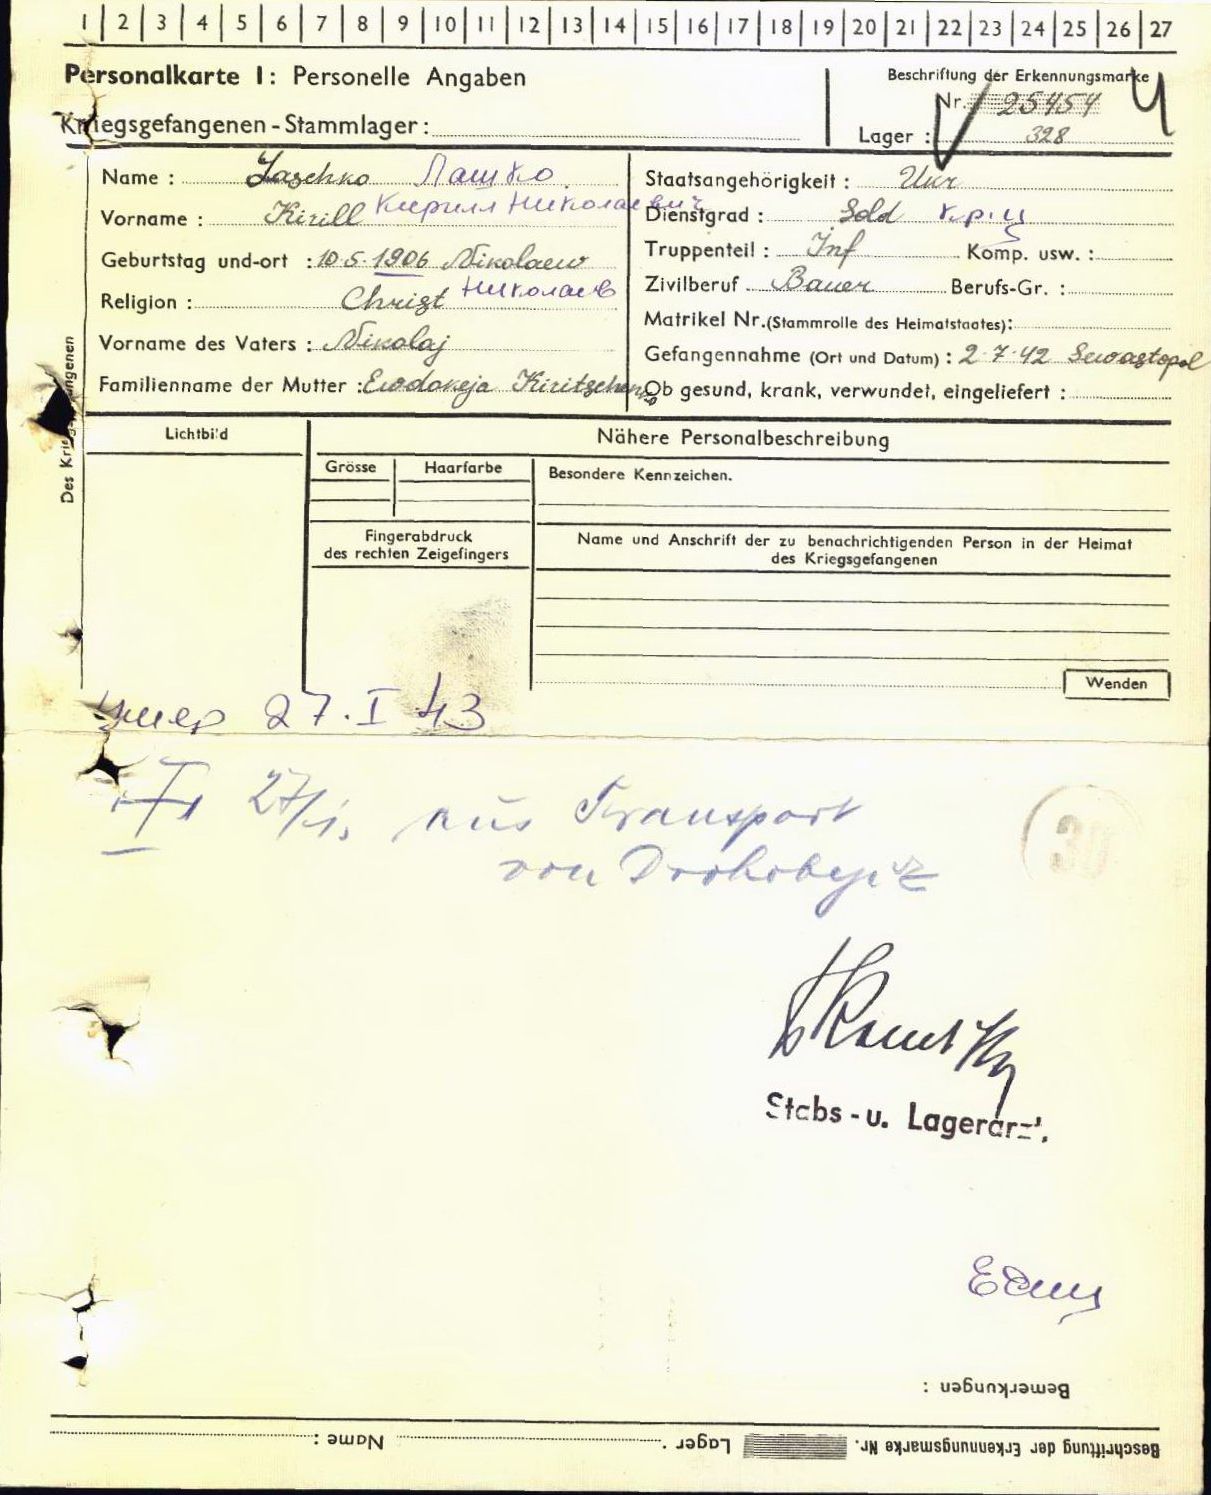 1 2 3 4 5 6 7 8 9 10 11 12 13 14 15 16 17 18 19 20 21 22 23 24 25 26 27
Personalkarte I: Personelle Angaben
Kriegsgefangenen-Stammlager:
Beschriftung der Erkennungsmarke
Nr. 25454
Lager: 328
Name: Laschko Лашко
Vorname: Kirill Кирилл Николаевич
Geburtstag und-ort: 10.5.1906 Nikolaew
Николаев
Religion: Christ
Vorname des Vaters: Nikolaj
Familienname der Mutter: Ewdokeja Kiritschenko
Staatsangehörigkeit: Ukr
Dienstgrad: Sold кр-ц
Truppenteil: Inf Komp. usw.:
Zivilberuf Bauer Berufs-Gr.:
Matrikel Nr. (Stammrolle des Heimatstaates):
Gefangennahme (Ort und Datum): 2.7.42 Sewastopol
Ob gesund, krank, verwundet, eingeliefert:
Des Kriegsgefangenen
Lichtbild
Nähere Personalbeschreibung
Grösse Haarfarbe
Besondere Kennzeichen.
Fingerabdruck
des rechten Zeigefingers
Name und Anschrift der zu benachrichtigenden Person in der Heimat
des Kriegsgefangenen
Wenden
умер 27.I 43
27/1. aus Transport
von Drohobycz
30
Stabs-u. Lagerarzt.
Bemerkungen:
Beschriftung der Erkennungsmarke Nr. Lager. Name: